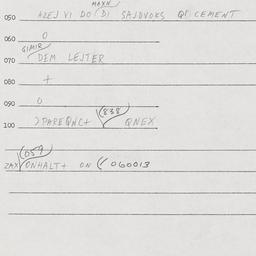 MAXN
050 AZEJ VI DO (DI SAJDVOKS QE CEMENT
060 O
GIMIR
070 DEM LEJTER
080 +
090 O
(838)
100 )PAREQNC+ QNEX
(059)
ZAX ONHALT+ ON (( 060013